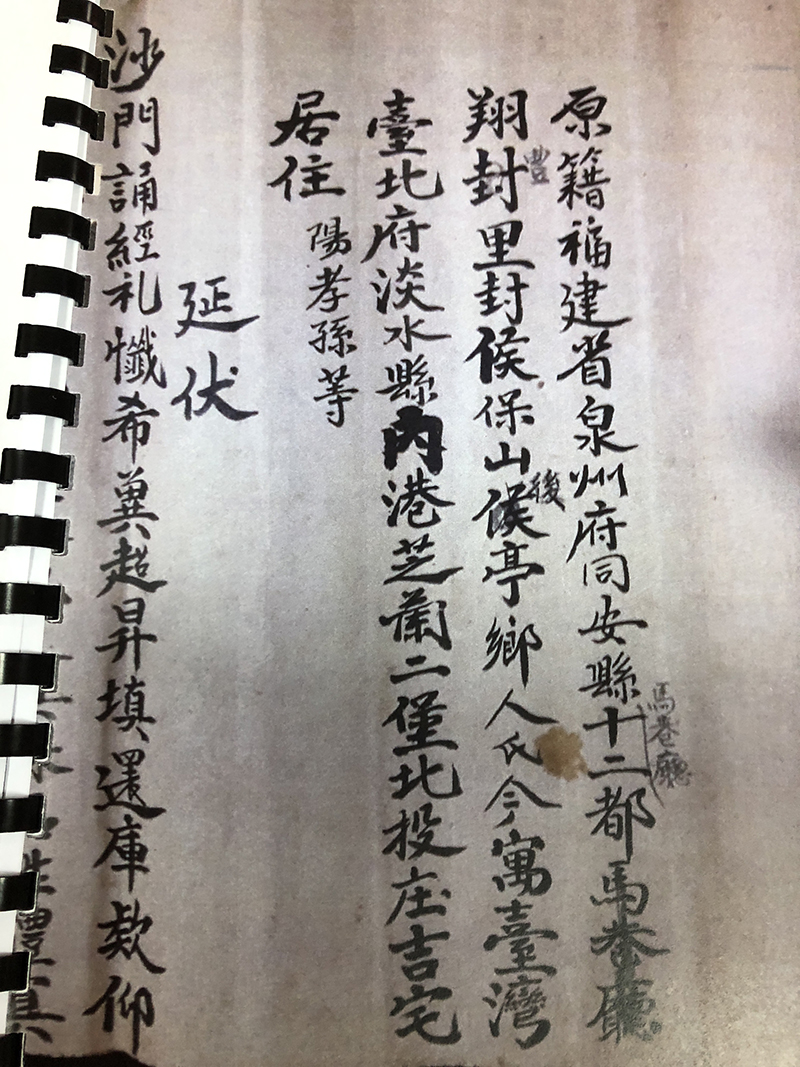 原籍福建省泉州府同安縣十二都馬巷廳
馬巷廳
翔封里封侯保山侯亭鄉人氏今寓臺灣
豐
後
臺北府淡水縣內港芝蘭二堡北投庄吉宅
居住陽孝孫等
延伏
沙門誦經礼懺希冀超昇填還庫欵仰